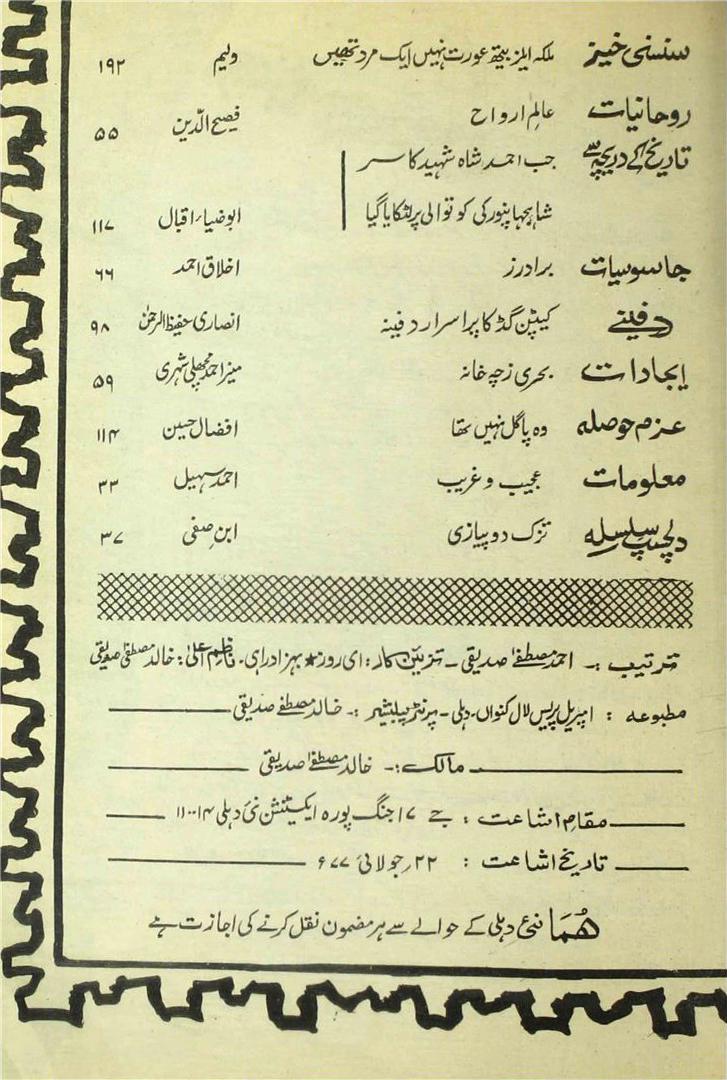 سنسنی خیز ملکہ ایلزبیتھ عورت نہیں ایک مرد تھیں ولیم ۱۹۲
روحانیات عالمِ ارواح فصیح الدّین ۵۵
تاریخ کے دریچہ سے جب احمد شاہ شہید کا سر
شاہجہانپور کی کوتوالی پر لٹکایا گیا ابوضیاء اقبال ۱۱۷
جاسوسیات برادرز اخلاق احمد ۶۶
دفینے کیپٹن گڈ کا پراسرار دفینہ انصاری حفیظ الرحمٰن ۹۸
ایجادات بحری زچہ خانہ میر احمد مچھلی شہری ۵۹
عزم حوصلہ وہ پاگل نہیں تھا افضال حسین ۱۱۴
معلومات عجیب و غریب احمد سہیل ۳۳
دلچسپ سلسلہ تزک دوپیازی ابن صفی ۳۷
ترتیب :- احمد مصطفےٰ صدیقی - تزئین کار : ای روز ★ بہزاد رای . ناظم اعلیٰ : خالد مصطفےٰ صدیقی
مطبوعہ : امپریل پریس لال کنواں . دہلی - پرنٹر پبلیشر :- خالد مصطفےٰ صدیقی
مالک :- خالد مصطفےٰ صدیقی
مقام اشاعت : جے ۱۷ جنگ پورہ ایکسٹنشن نئ دہلی ۱۱۰۰۱۴
تاریخ اشاعت : ۲۲؍ جولائی ۷۷ء
ھُمَا نئ دہلی کے حوالے سے ہر مضمون نقل کرنے کی اجازت ہے